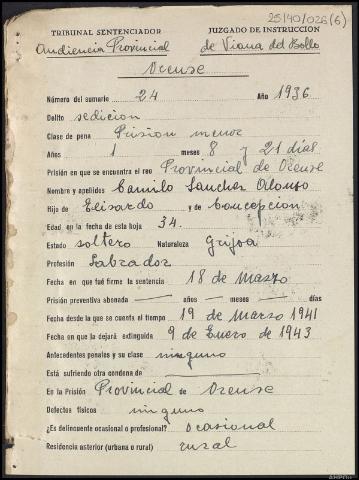 25/40/026(6)
TRIBUNAL SENTENCIADOR JUZGADO DE INSTRUCCIÓN
Audiencia Provincial de Viana del Bollo
Orense
Número del sumario 24 Año 1936
Delito sedicion
Clase de pena Prision menor
Años 1 meses 8 y 21 días
Prisión en que se encuentra el reo Provincial de Orense
Nombre y apellidos Camilo Sanchez Alonso
Hijo de Elisardo y de Concepcion
Edad en la fecha de esta hoja 34.
Estado soltero Naturaleza Grijoa
Profesión Labrador
Fecha en que fué firme la sentencia 18 de Marzo
Prisión preventiva abonada — años — meses — días
Fecha desde la que se cuenta el tiempo 19 de Marzo 1941
Fecha en que la dejará extinguida 9 de Enero de 1943
Antecedentes penales y su clase ninguno
Está sufriendo otra condena de
En la Prisión Provincial de Orense
Defectos físicos ninguno
¿Es delincuente ocasional o profesional? ocasional
Residencia anterior (urbana o rural) rural
AHPOu